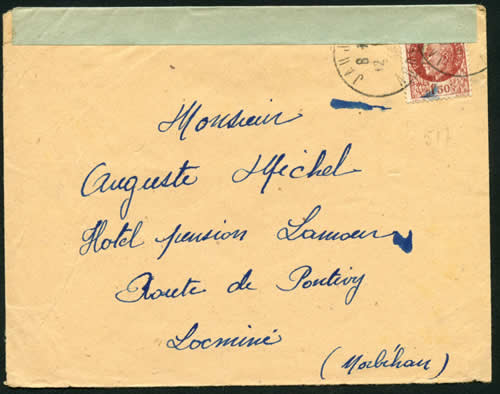 JAN
8
12
50
517
Monsieur
Auguste Michel
Hotel pension Lamour
Route de Pontivy
Locminé
(Morbihan)